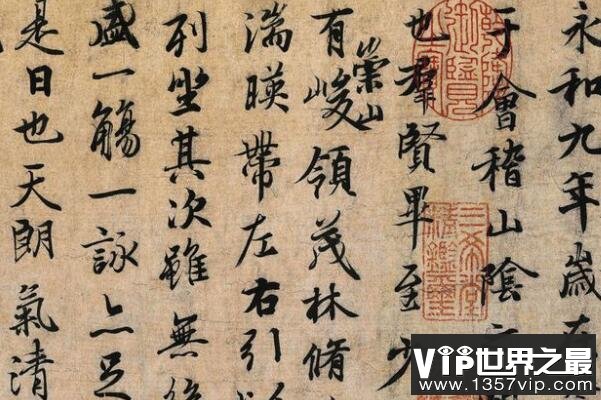 永和九年歲在
于會稽山陰
也羣賢畢至少
有崇山峻領茂林脩
湍暎帶左右引
列坐其次雖無
盛一觴一詠亦足
是日也天朗氣清
三希堂精鑑璽
VIP世界之最
www.1357vip.com